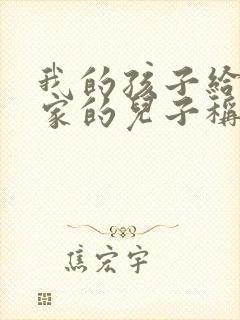 我的孩子給
家的兒子稱
焦宏宇